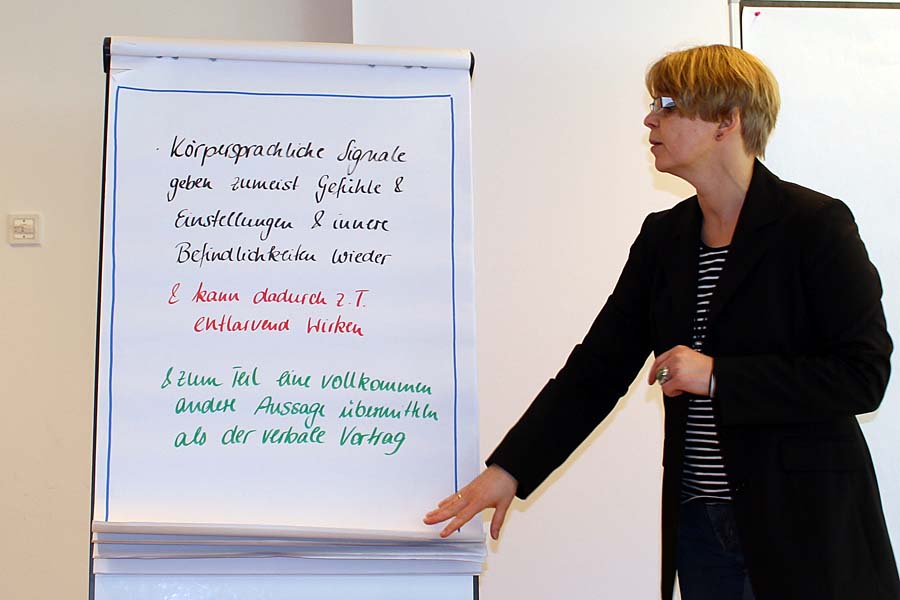 · Körpersprachliche Signale
geben zumeist Gefühle &
Einstellungen & innere
Befindlichkeiten wieder
& kann dadurch z.T.
entlarvend wirken
& zum Teil eine vollkommen
andere Aussage übermitteln
als der verbale Vortrag